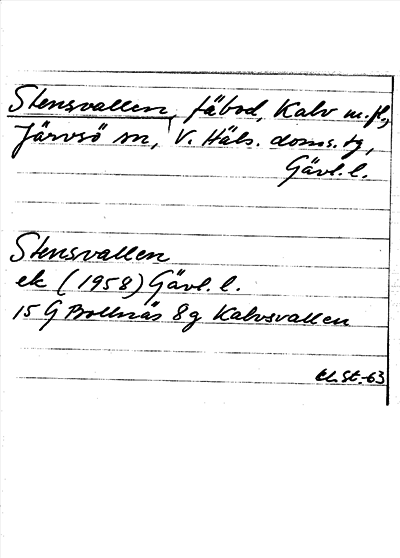 Stensvallen, fäbod, Kalv m.fl.,
Järvsö sn, V. Häls. doms.tg,
Gävl. l.
Stensvallen
ek (1958) Gävl. l.
15 G Bollnäs 8g Kalvsvallen
St.-63